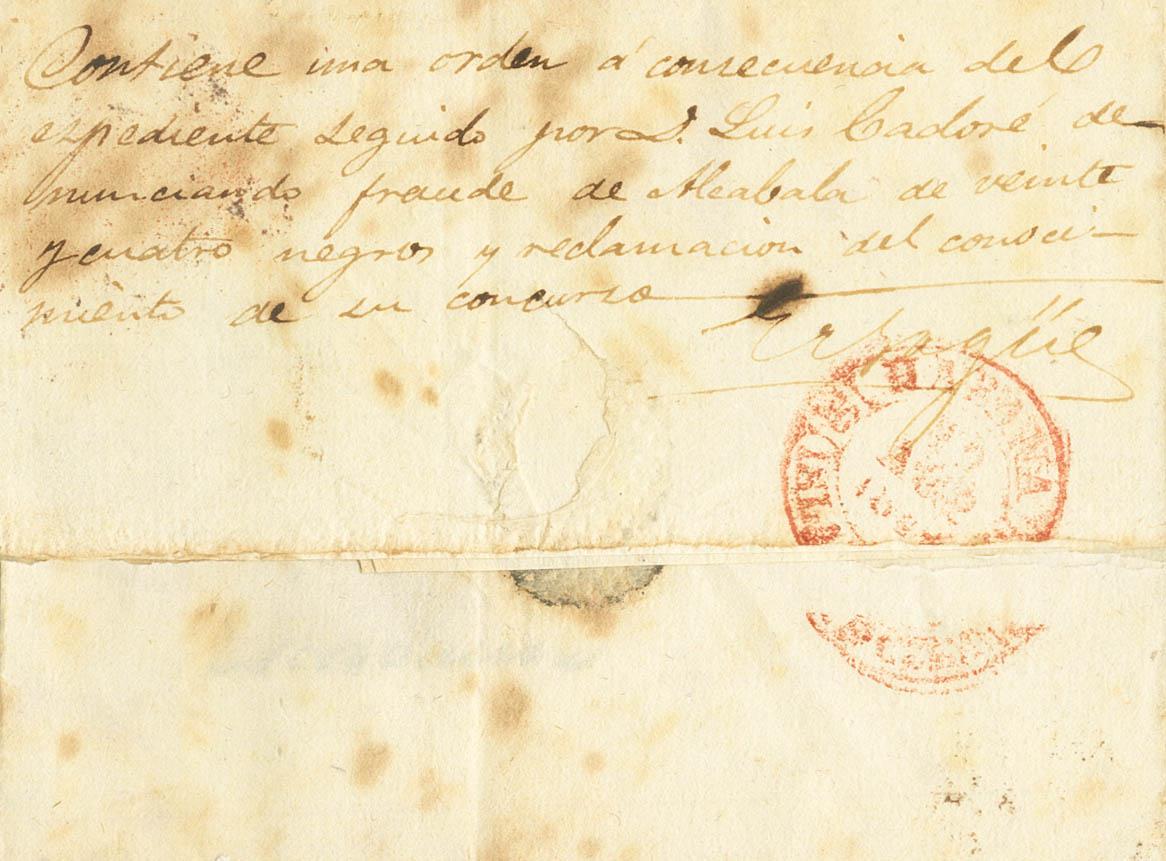 Contiene una orden á consecuencia del
espediente seguido por D. Luis Cadoré de-
nunciando fraude de Alcabala de veinte
y cuatro negros y reclamacion del conoci-
miento de su concurso
HABANA